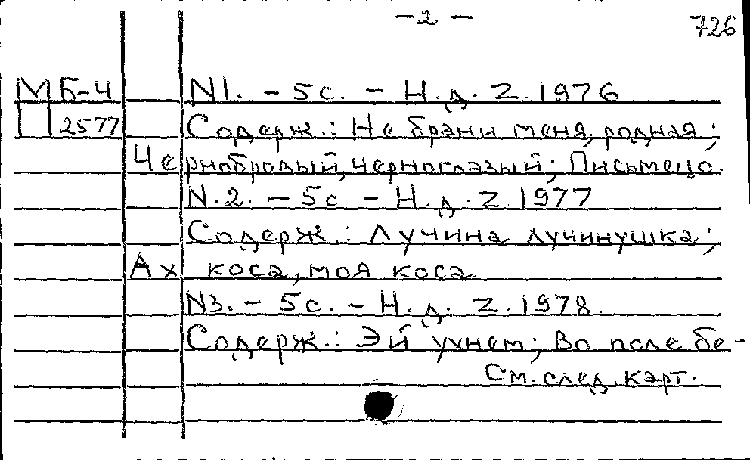 -2-
726
МБ-4 N1. - 5с. - Н.д. Z.1976
П 2577 Содерж.: Не брани меня, родная;
Чернобровый, черноглазый; Письмецо
N.2. - 5с - Н.д. Z 1977
Содерж.: Лучина лучинушка;
Ах коса, моя коса
N3. - 5с. - Н.д. Z.1978.
Содерж.: Эй ухнем; Во поле бе-
См. след. карт.